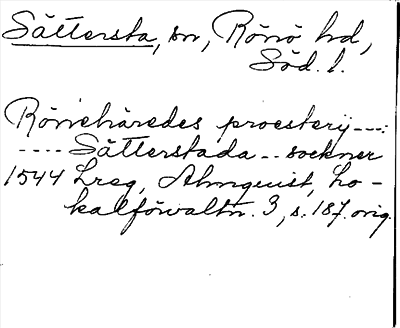 Sättersta, sn, Rönö hd,
Söd. l.
Rönehäredes proesterij ---:
---- Sätterstada -- sockner
1544 Lreg, Almquist, Lo-
kalförvaltn. 3, s. 187. orig.